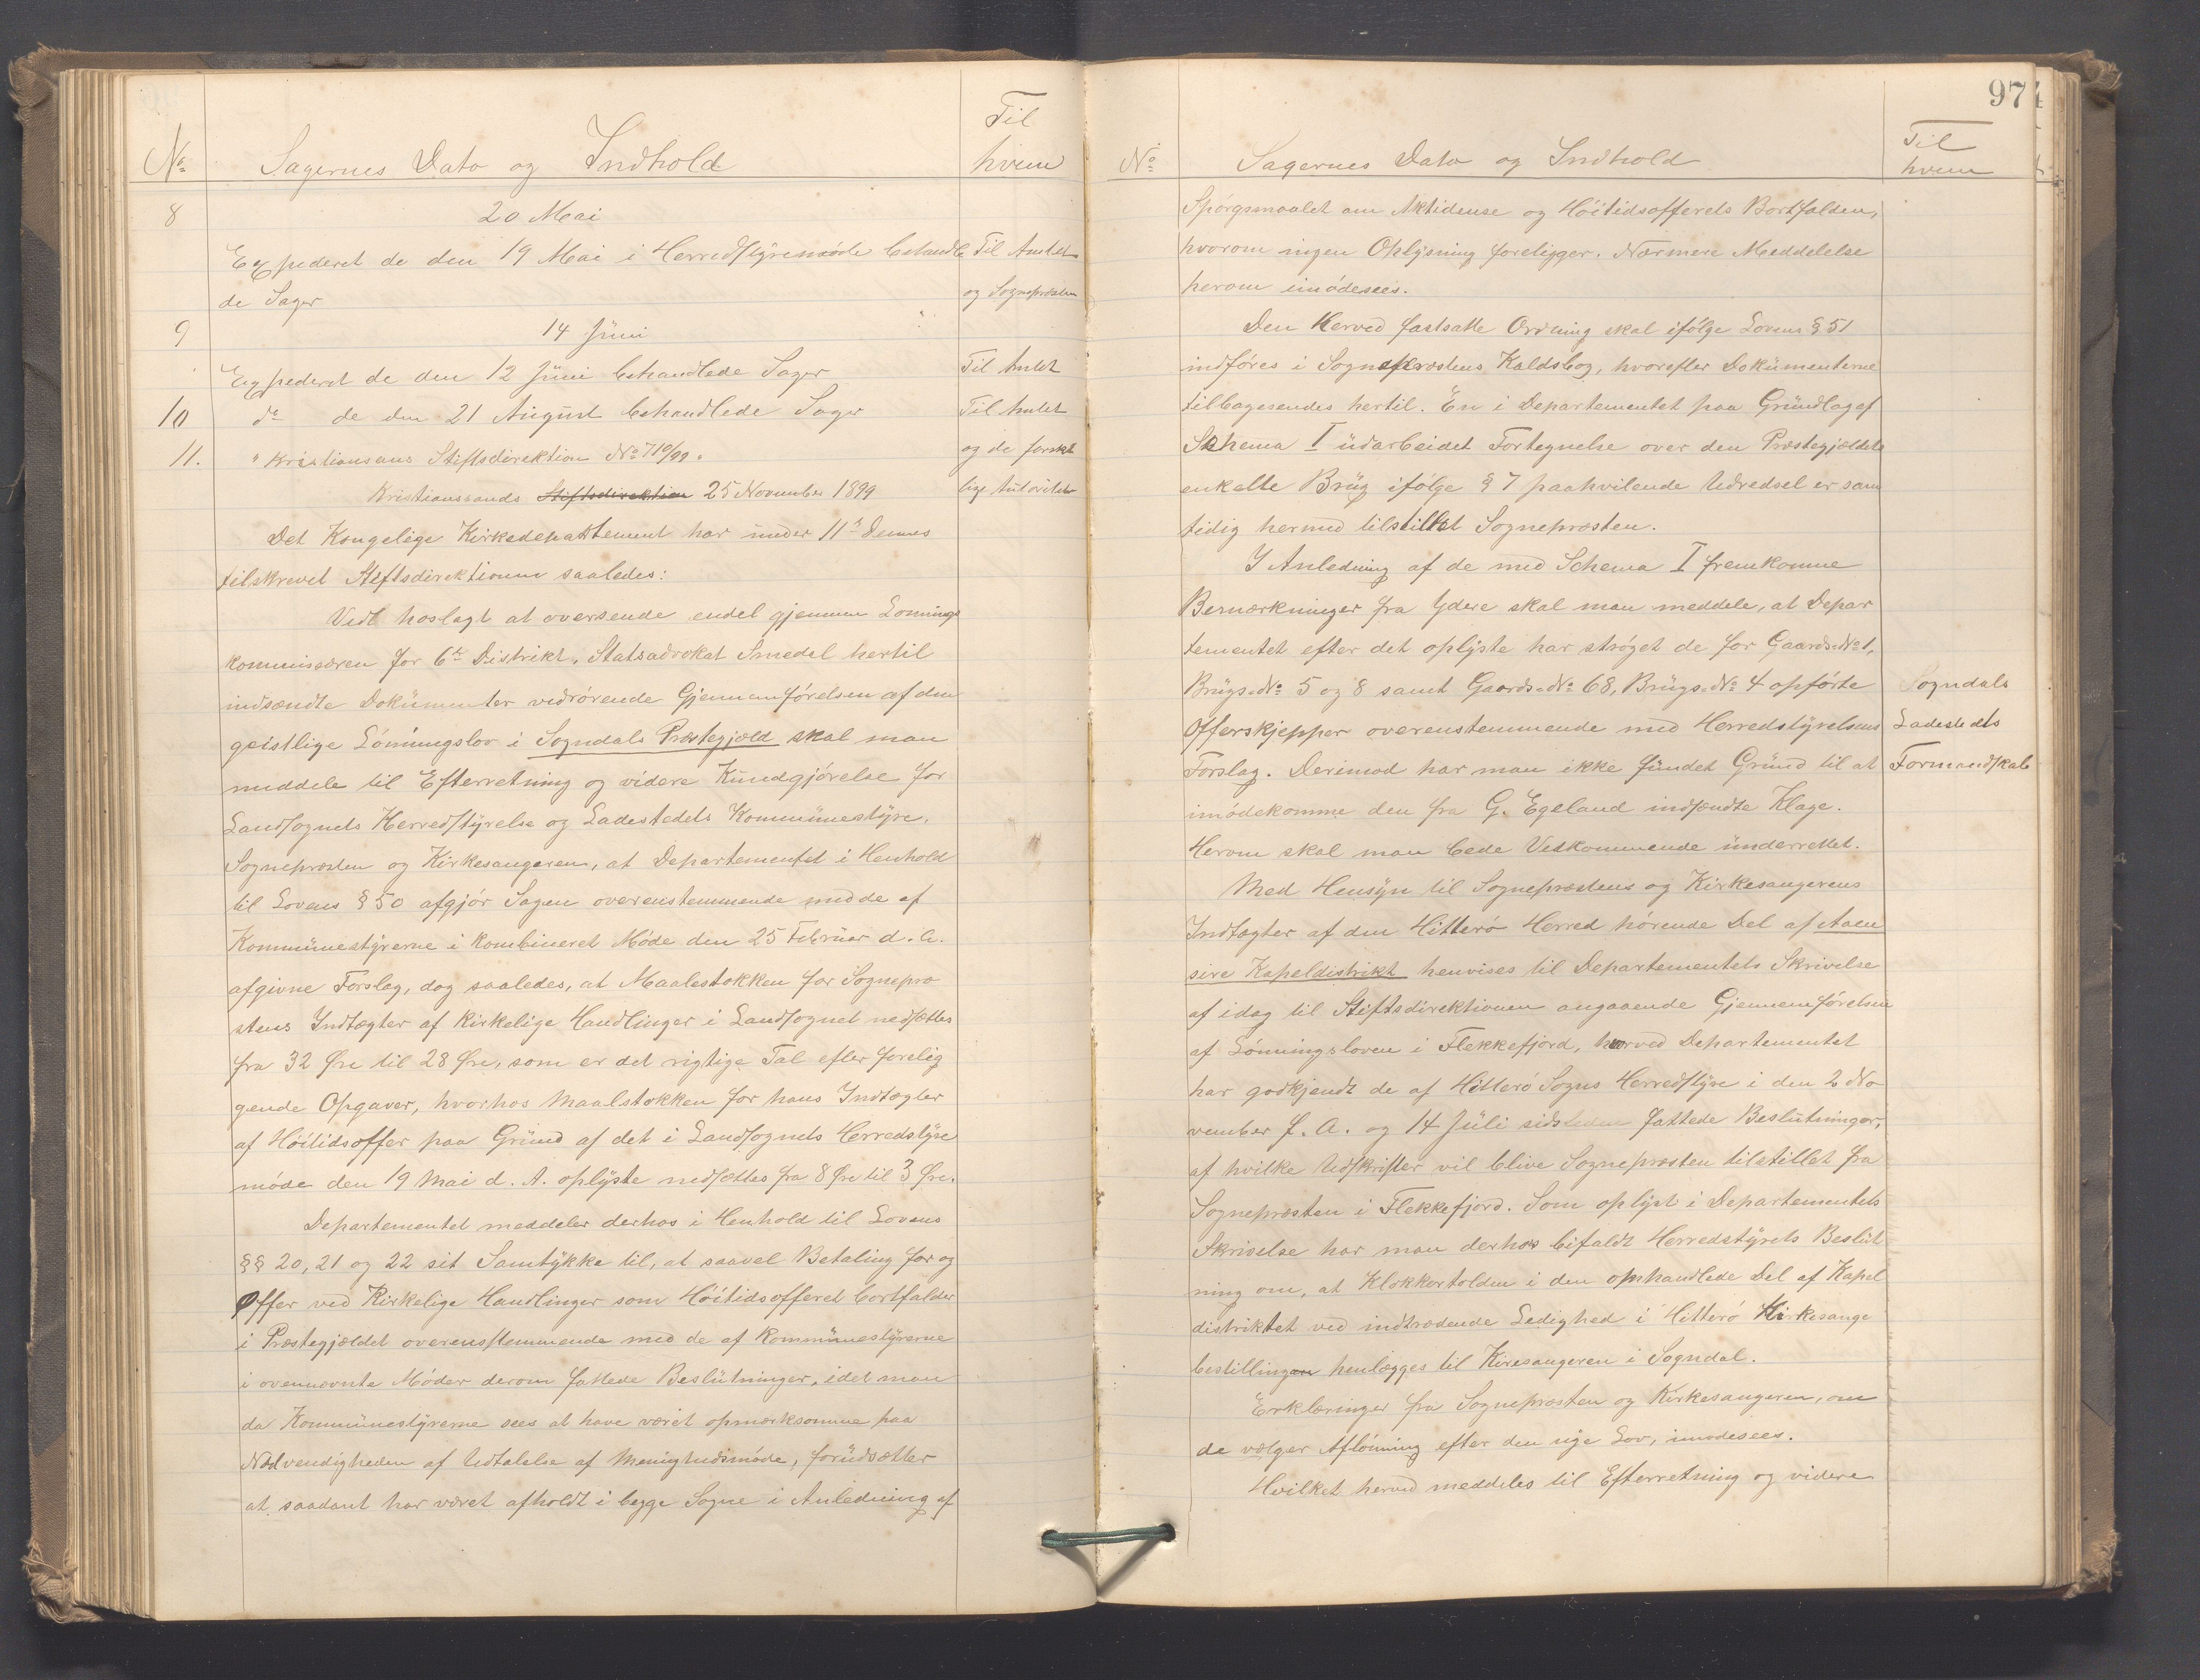 No Sagernes Dato og Indhold Til hvem
8 20 Mai
Expederet de den 19 Mai i Herredstyremøde behandle Til Amtet
de Sager og Sognepræsten
9 14 Juni
Expederet de den 12 Juni behandlede Sager Til Amtet
10 do de den 21 August behandlede Sager Til Amtet
11. " Kristiansans Stiftsdirektion No 710/99. og de forskl
Kristianssands Stiftsdirektion 25 November 1899 lige Autoriteter
Det Kongelige Kirkedepartement har under 11te dennes
tilskrevet Stiftsdirektionen saaledes:
Vedl hoslagt at oversende endel gjennem Lønnings
kommissæren for 6te Distrikt, Statsadvokat Smedel hertil
indsændte Dokumenter vedrørende Gjennemførelsen af den
geistlige Lønningslov i Sogndals Præstegjæld skal man
meddele til Efterretning og videre Kundgjørelse for
Landsognets Herredstyrelse og Ladestedets Kommunestyre,
Sognepræsten og Kirkesangeren, at Departementet i Henhold
til Lovens § 50 afgjør Sagen overenstemmende med de af
Kommunestyrerne i kombineret Møde den 25 Februar d. A.
afgivne Forslag, dog saaledes, at Maalestokken for Sognepræ
stens Indtægter af kirkelige Handlinger i Landsognet nedsættes
fra 32 Øre til 28 Øre, som er det rigtige Tal efter forelig
gende Opgaver, hvorhos Maalstokken for hans Indtægter
af Høitidsoffer paa Grund af det i Landsognets Herredstyre
møde den 19 Mai d. A. oplyste nedsættes fra 8 Øre til 3 Øre.
Departementet meddeler derhos i Henhold til Lovens
§§ 20, 21 og 22 sit Samtykke til, at saavel Betaling for og
Offer ved Kirkelige Handlinger som Høitidsofferet bortfalder
i Præstegjældet overensstemmende med de af Kommunestyrerne
i ovennævnte Møder derom fattede Beslutninger, idet man
da Kommunestyrerne sees at have været opmærksomme paa
Nødvendigheden af Udtalelse af Menighedsmøde, forudsætter
at saadant har været afholdt i begge Sogne i Anledning af
97
No Sagernes Dato og Indhold Til hvem
Spørgsmaalet om Aktidense og Høitidsofferets Bortfalden,
hvorom ingen Oplysning foreligger. Nærmere Meddelelse
herom imødesees.
Den herved fastsatte Ordning skal ifølge Lovens § 51
indføres i Sognepræstens Kaldsbog, hvorefter Dokumenterne
tilbagesendes hertil. En i Departementet paa Grundlag af
Schema I udarbeidet Fortegnelse over den Præstegjældets
enkelte Brug ifølge § 7 paahvilende Udredsel er sam
tidig hermed tilstillet Sognepræsten.
I Anledning af de med Schema I fremkomne
Bemærkninger fra Ydere skal man meddele, at Depar
tementet efter det oplyste har strøget de for Gaards-No 1,
Brugs-No 5 og 8 samt Gaards-No 68, Brugs-No 4 opførte Sogndals
Offerskjepper overenstemmende med Herredstyrelsens Ladesteds
Forslag. Derimod har man ikke fundet Grund til at Formandskab
imødekomme den fra G. Egeland indsendte Klage.
Herom skal man bede Vedkommende underrettet.
Med Hensyn til Sognepræstens og Kirkesangerens
Indtægter af den Hitterø Herred hørende Del af Aaen
sire Kapeldistrikt henvises til Departementets Skrivelse
af idag til Stiftsdirektionen angaaende Gjennemførelsen
af Lønningsloven i Flekkefjord, hvorved Departementet
har godkjendt de af Hitterø Sogns Herredstyre i den 2 No
vember f. A. og 14 Juli sidstleden fattede Beslutninger,
af hvilke Udskrifter vil blive Sognepræsten tilstillet fra
Sognepræsten i Flekkefjord. Som oplyst i Departementets
Skrivelse har man derhos bifaldt Herredstyrets Beslut
ning om, at Klokkertolden i den omhandlede Del af Kapel
distriktet ved indtrædende Ledighed i Hitterø Kirkesange
bestillingen henlægges til Kiresangeren i Sogndal.
Erklæringer fra Sognepræsten og Kirkesangeren, om
de vælger Aflønning efter den nye Lov, imødesees.
Hvilket herved meddeles til Efterretning og videre